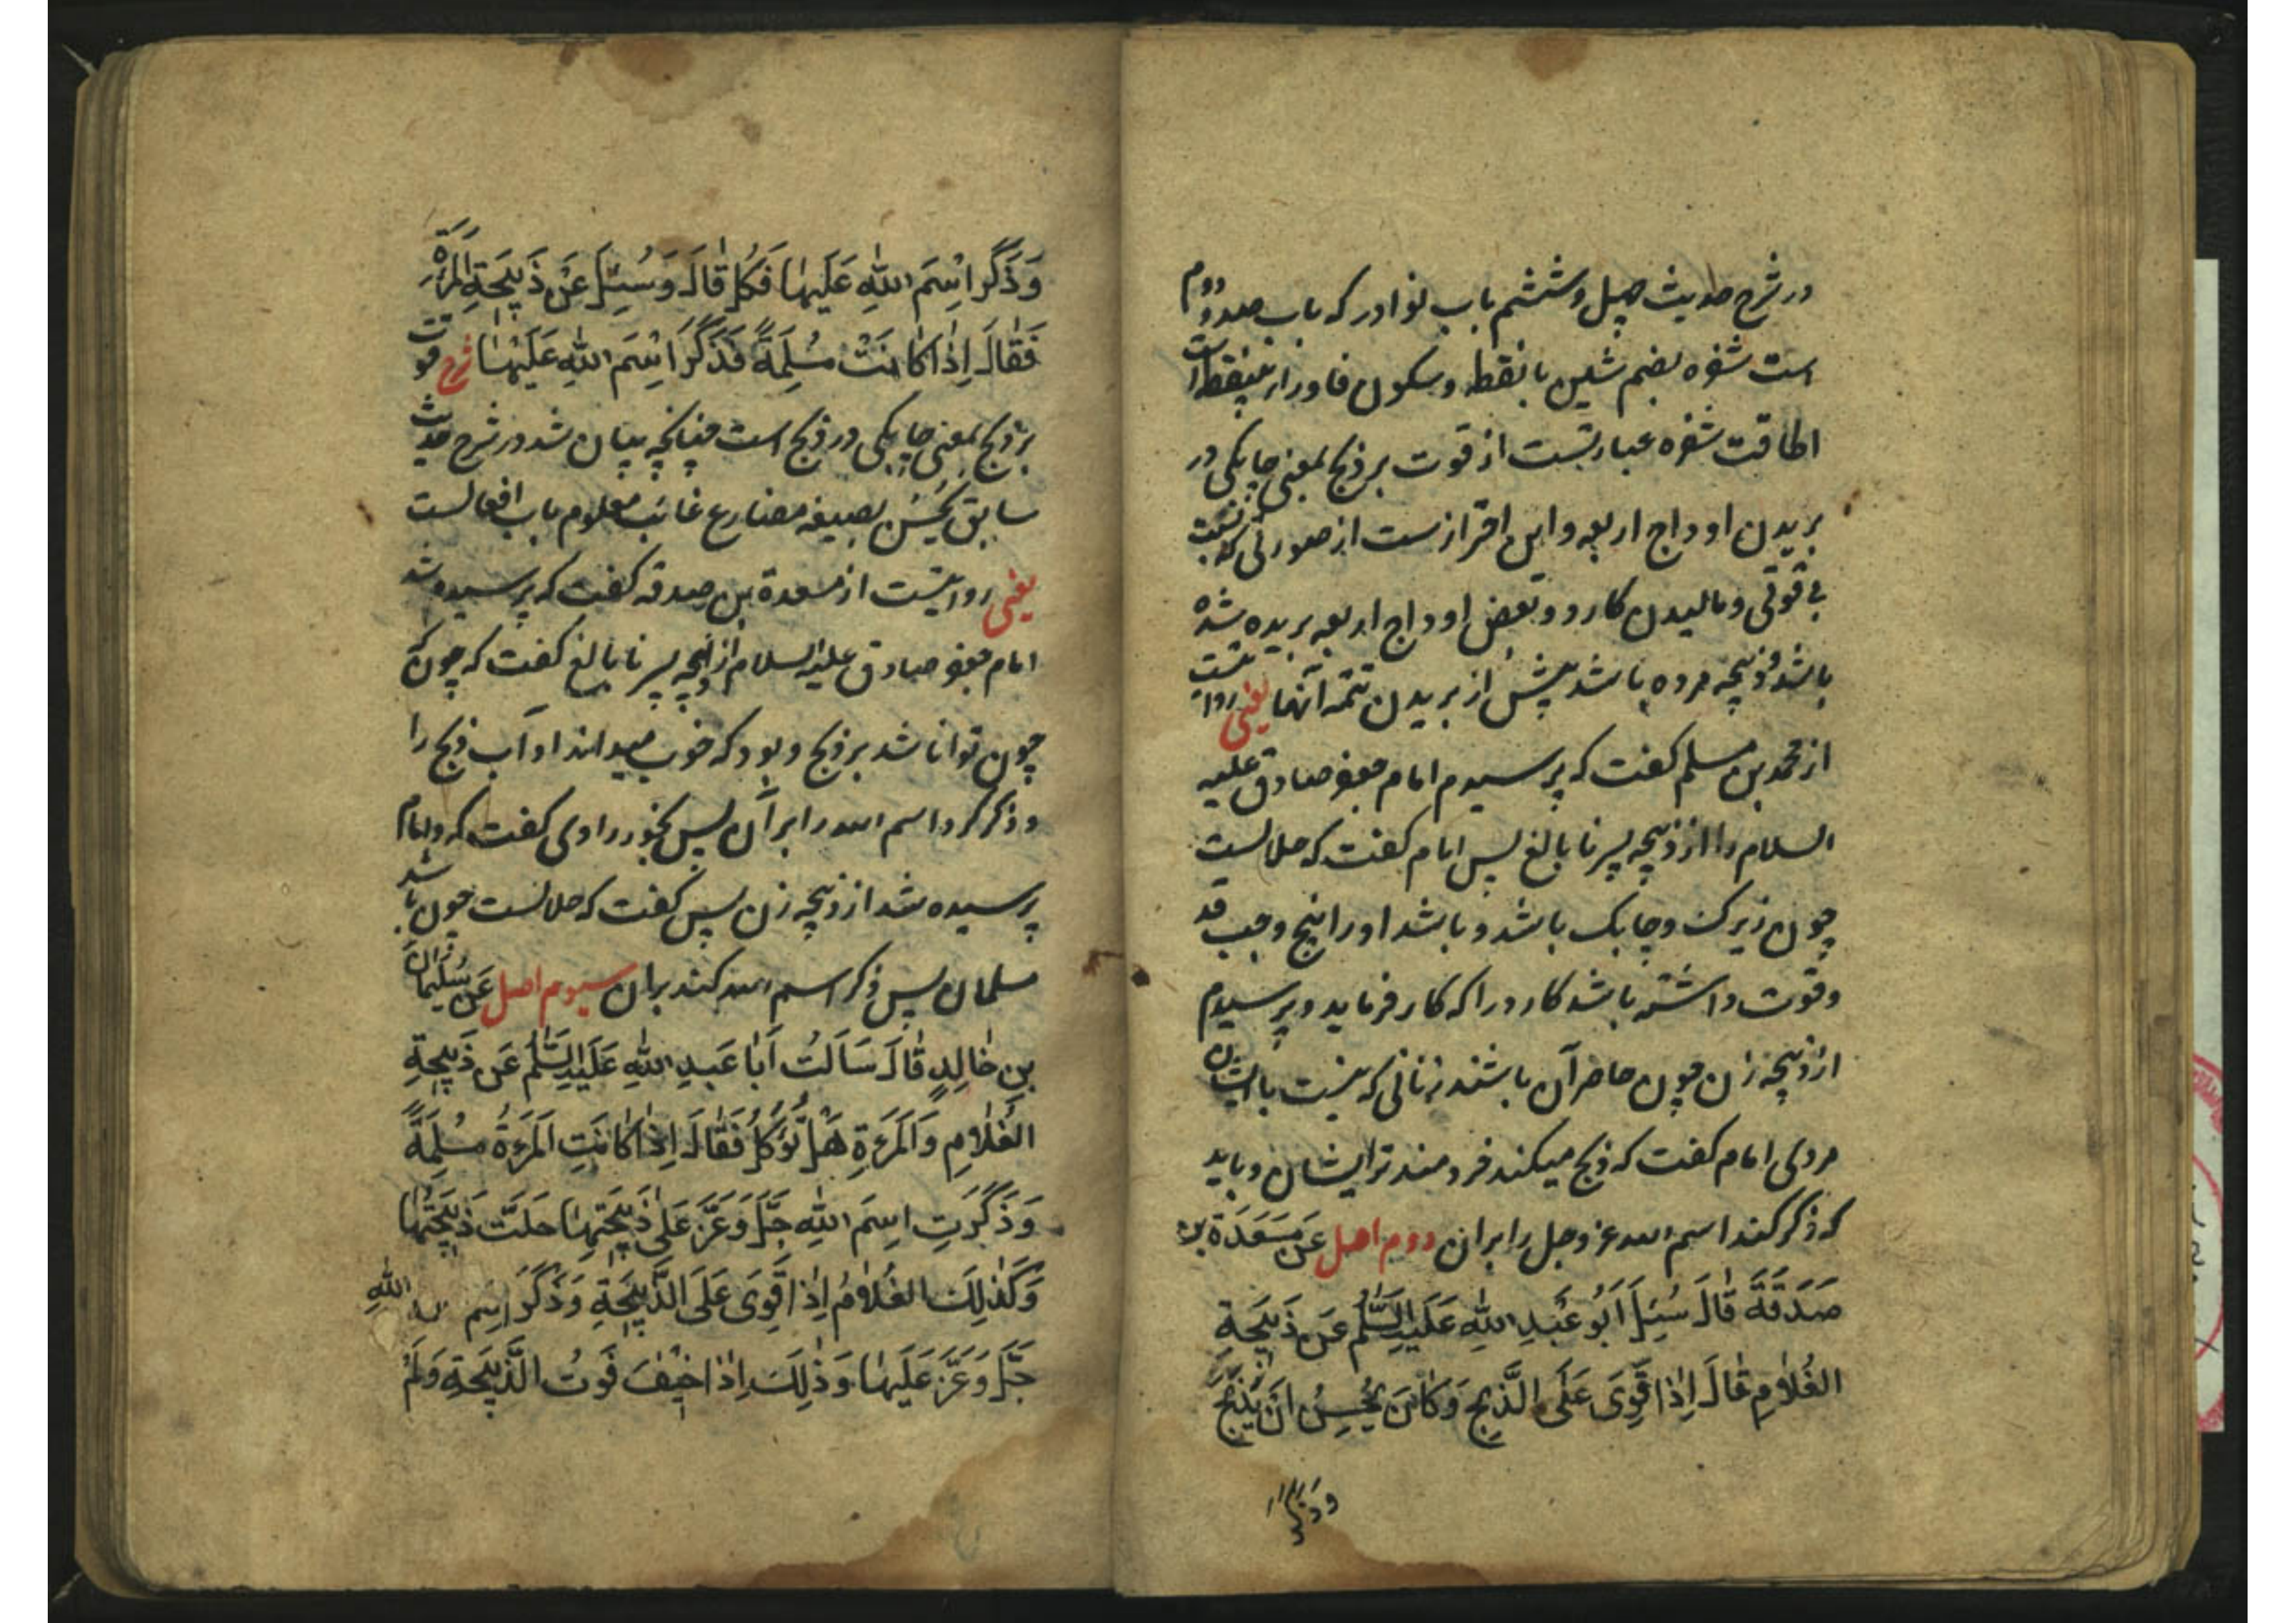 در شرح حدیث چهل و ششم باب نوادر که باب صد و دوم
است شفره بضم شین با نقطه و سکون فا و راء بینقطه است
اطاقت شفره عبارتست از قوت بر ذبح بمعنی چابکی در
بریدن اوداج اربعه و این احتراز ست از صورتی که بسبب
بی قوتی و مالیدن کارد و بعض اوداج اربعه بریده شده
باشد و ذبیحه مرده باشد پیش از بریدن تتمه آنها یعنی روایتست
از محمد بن مسلم گفت که پرسیدم امام جعفر صادق علیه
السلام را از ذبیحه پسر نابالغ پس امام گفت که حلالست
چون زیرک و چابک باشد و باشد او را پنج وجب قد
و قوت داشته باشد کارد را که کار فرماید و پرسیدم
از ذبیحه زن چون حاضر آن باشند زنانی که نیست با ایشان
مردی امام گفت که ذبح میکند خردمندتر ایشان و باید
که ذکر کند اسم الله عز و جل را بران دوم اصل عَن مَسعَدَةَ بن
صَدَقَةَ قَالَ سُئِلَ اَبُو عَبدِ اللهِ عَلَیهِ السَّلٰمُ عَن ذَبِیحَةِ
الغُلٰامِ قٰالَ اِذٰا قَوِیَ عَلَی الذَّبحِ وَ کٰانَ یُحسِنُ اَن یَذبَحَ
و ذکر
وَذَکَرَ اسْمَ اللهِ عَلَیهٰا فَکُل قٰالَ وَ سُئِلَ عَنْ ذَبِیحَةِ المَرْأَةِ
فَقٰالَ اِذٰا کٰانَتْ مُسْلِمَةً فَذَکَرَ اسْمَ اللهِ عَلَیْهٰا شرح قوت
بر ذبح بمعنی چابکی در ذبح است چنانچه بیان شد در شرح حدیث
سابق یُحْسِنُ بصیغه مضارع غائب معلوم باب افعالست
یعنی روایتست از مسعدة بن صدقه گفت که پرسیده شد
امام جعفر صادق علیه السلام از ذبیحه پسر نابالغ گفت که چون که
چون توانا شد بر ذبح و بود که خوب میداند او آب ذبح را
و ذکر کرد اسم الله را بر آن پس بخور راوی گفت که و امام
پرسیده شد از ذبیحه زن پس گفت که حلالست چون باشد
مسلمان پس ذکر اسم الله کند بران سیوم اصل عَن سُلَیمٰانَ
بنِ خٰالِدٍ قٰالَ سَاَلتُ اَبٰا عَبدِ اللهِ عَلَیهِ السَّلٰمُ عَن ذَبِیحَةِ
الغُلٰامِ وَ المَرءَةِ هَلْ تُؤکَلُ فَقٰالَ اِذٰا کٰانَتِ المَرءَةُ مُسْلِمَةً
وَ ذَکَرَتِ اسمَ اللهِ جَلَّ وَ عَزَّ عَلٰی ذَبِیحَتِهٰا حَلَّت ذَبِیحَتُهٰا
وَ کَذٰلِکَ الغُلٰامُ اِذٰا قَوِیَ عَلَی الذَّبِیحَةِ وَ ذَکَرَ اسمَ اللهِ
جَلَّ وَ عَزَّ عَلَیهٰا وَ ذٰلِکَ اِذٰا خِیفَ فَوتُ الذَّبِیحَةِ وَ لَم